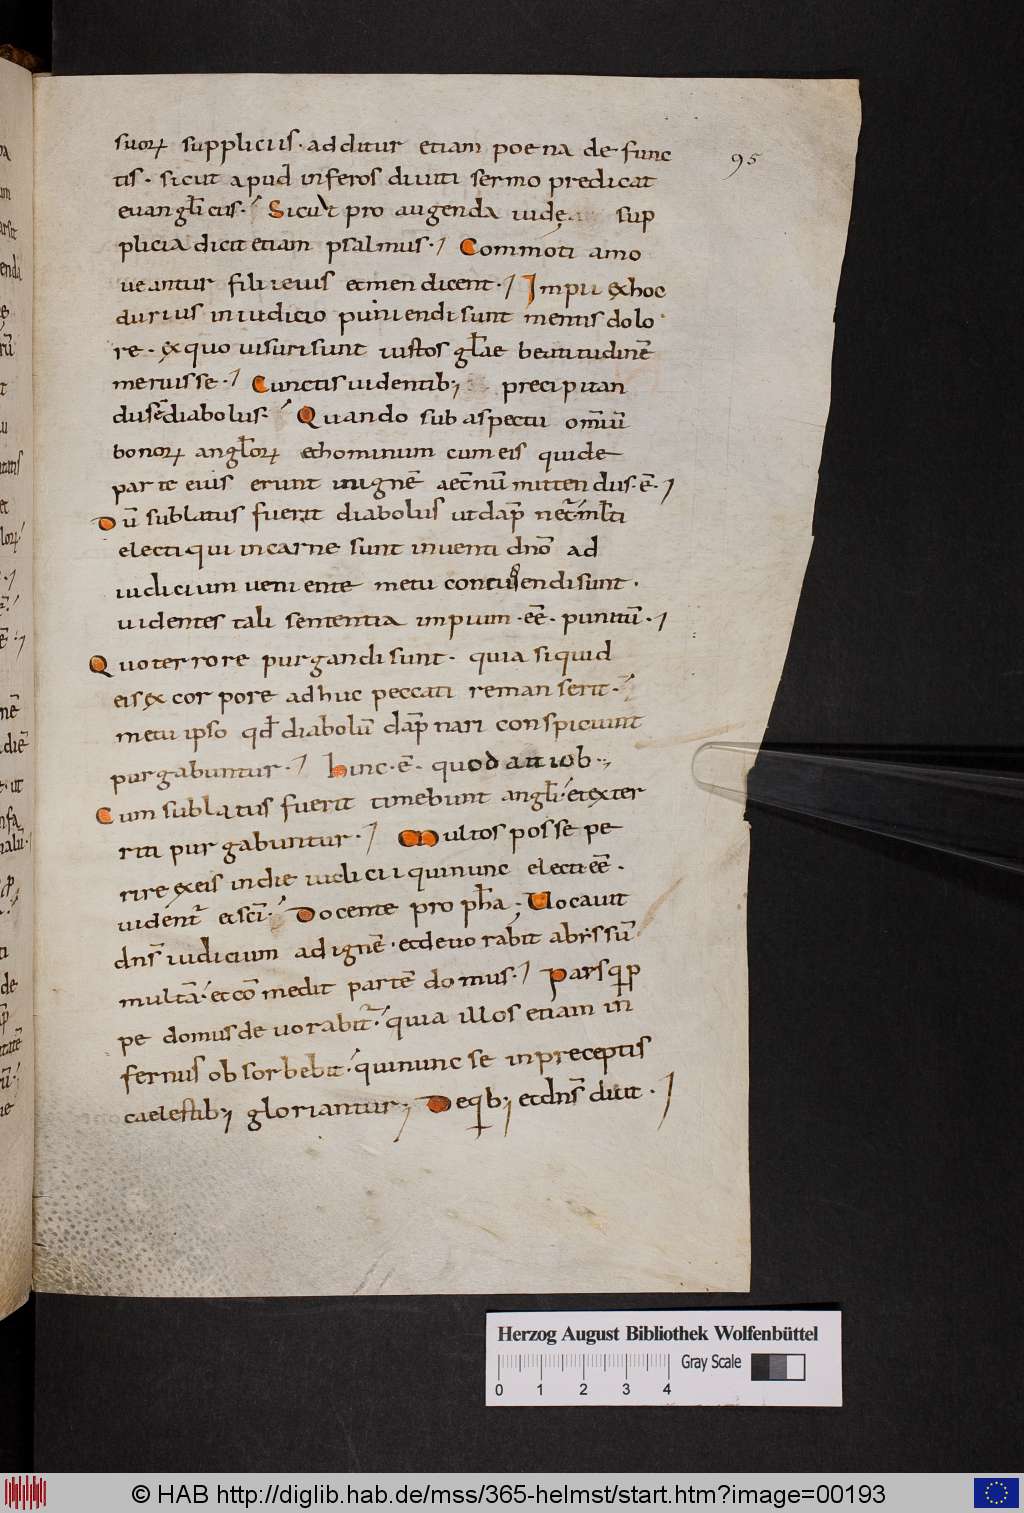 suoꝝ suppliciis · additur etiam poena de func
tis · sicut apud inferos diuiti sermo predicat
euanglicus · Sicut pro augenda iude sup
plicia dicit etiam psalmus · Commoti amo
ueantur filii eius et mendicent · Impii ex hoc
durius in iudicio puniendi sunt mentis dolo
re · ex quo uisuri sunt iustos gl̄ae beatitudinē
meruisse · Cunctis uidentib; precipitan
dus ē diabolus · Quando sub aspectu omiū
bonoꝝ angl̄oꝝ et hominum cum eis qui de
parte eius erunt in ignē aet̄nū mittendus · ē ·
Dū sublatus fuerit diabolus ut dāp
electi qui in carne sunt inuenti dn̄o ad
iudicium ueniente metu
uidentes tali sententia impium · eē · punitū ·
Quo terrore purgandi sunt · quia si quid
eis ex corpore adhuc peccati remanserit ·
metu ipso qd̄ diabolū dāpnari conspiciunt
purgabuntur · Hinc · ē · quod ait iob ·
Cum sublatus fuerit timebunt angl̄i et exter
riti purgabuntur · Multos posse pe
rire ex eis in die iudicii qui nunc electi eē ·
uident̄ ei sc̄i · Docente propha · Uocauit
dn̄s iudicium ad ignē · et deuorabit abyssū
multā · et comedit partē domus · Pars qip
pe domus deuorabit̄ · quia illos etiam in
fernus obsorbebit · qui nunc se in preceptis
caelestib; gloriantur; De qib; et dn̄s dicit ·
95
Herzog August Bibliothek Wolfenbüttel
Gray Scale
0 1 2 3 4
© HAB http://diglib.hab.de/mss/365-helmst/start.htm?image=00193